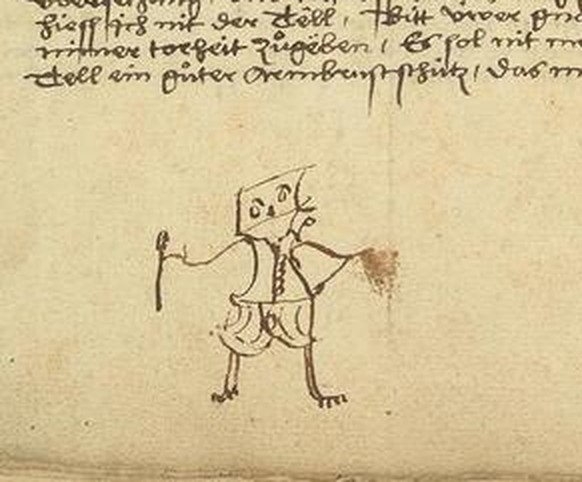 hiess ich nit der Tëll, Bitt üwer gn
mmer torheit zůgëben, Es sol nit m
Tëll ein gůter Armbrustschütz, das m